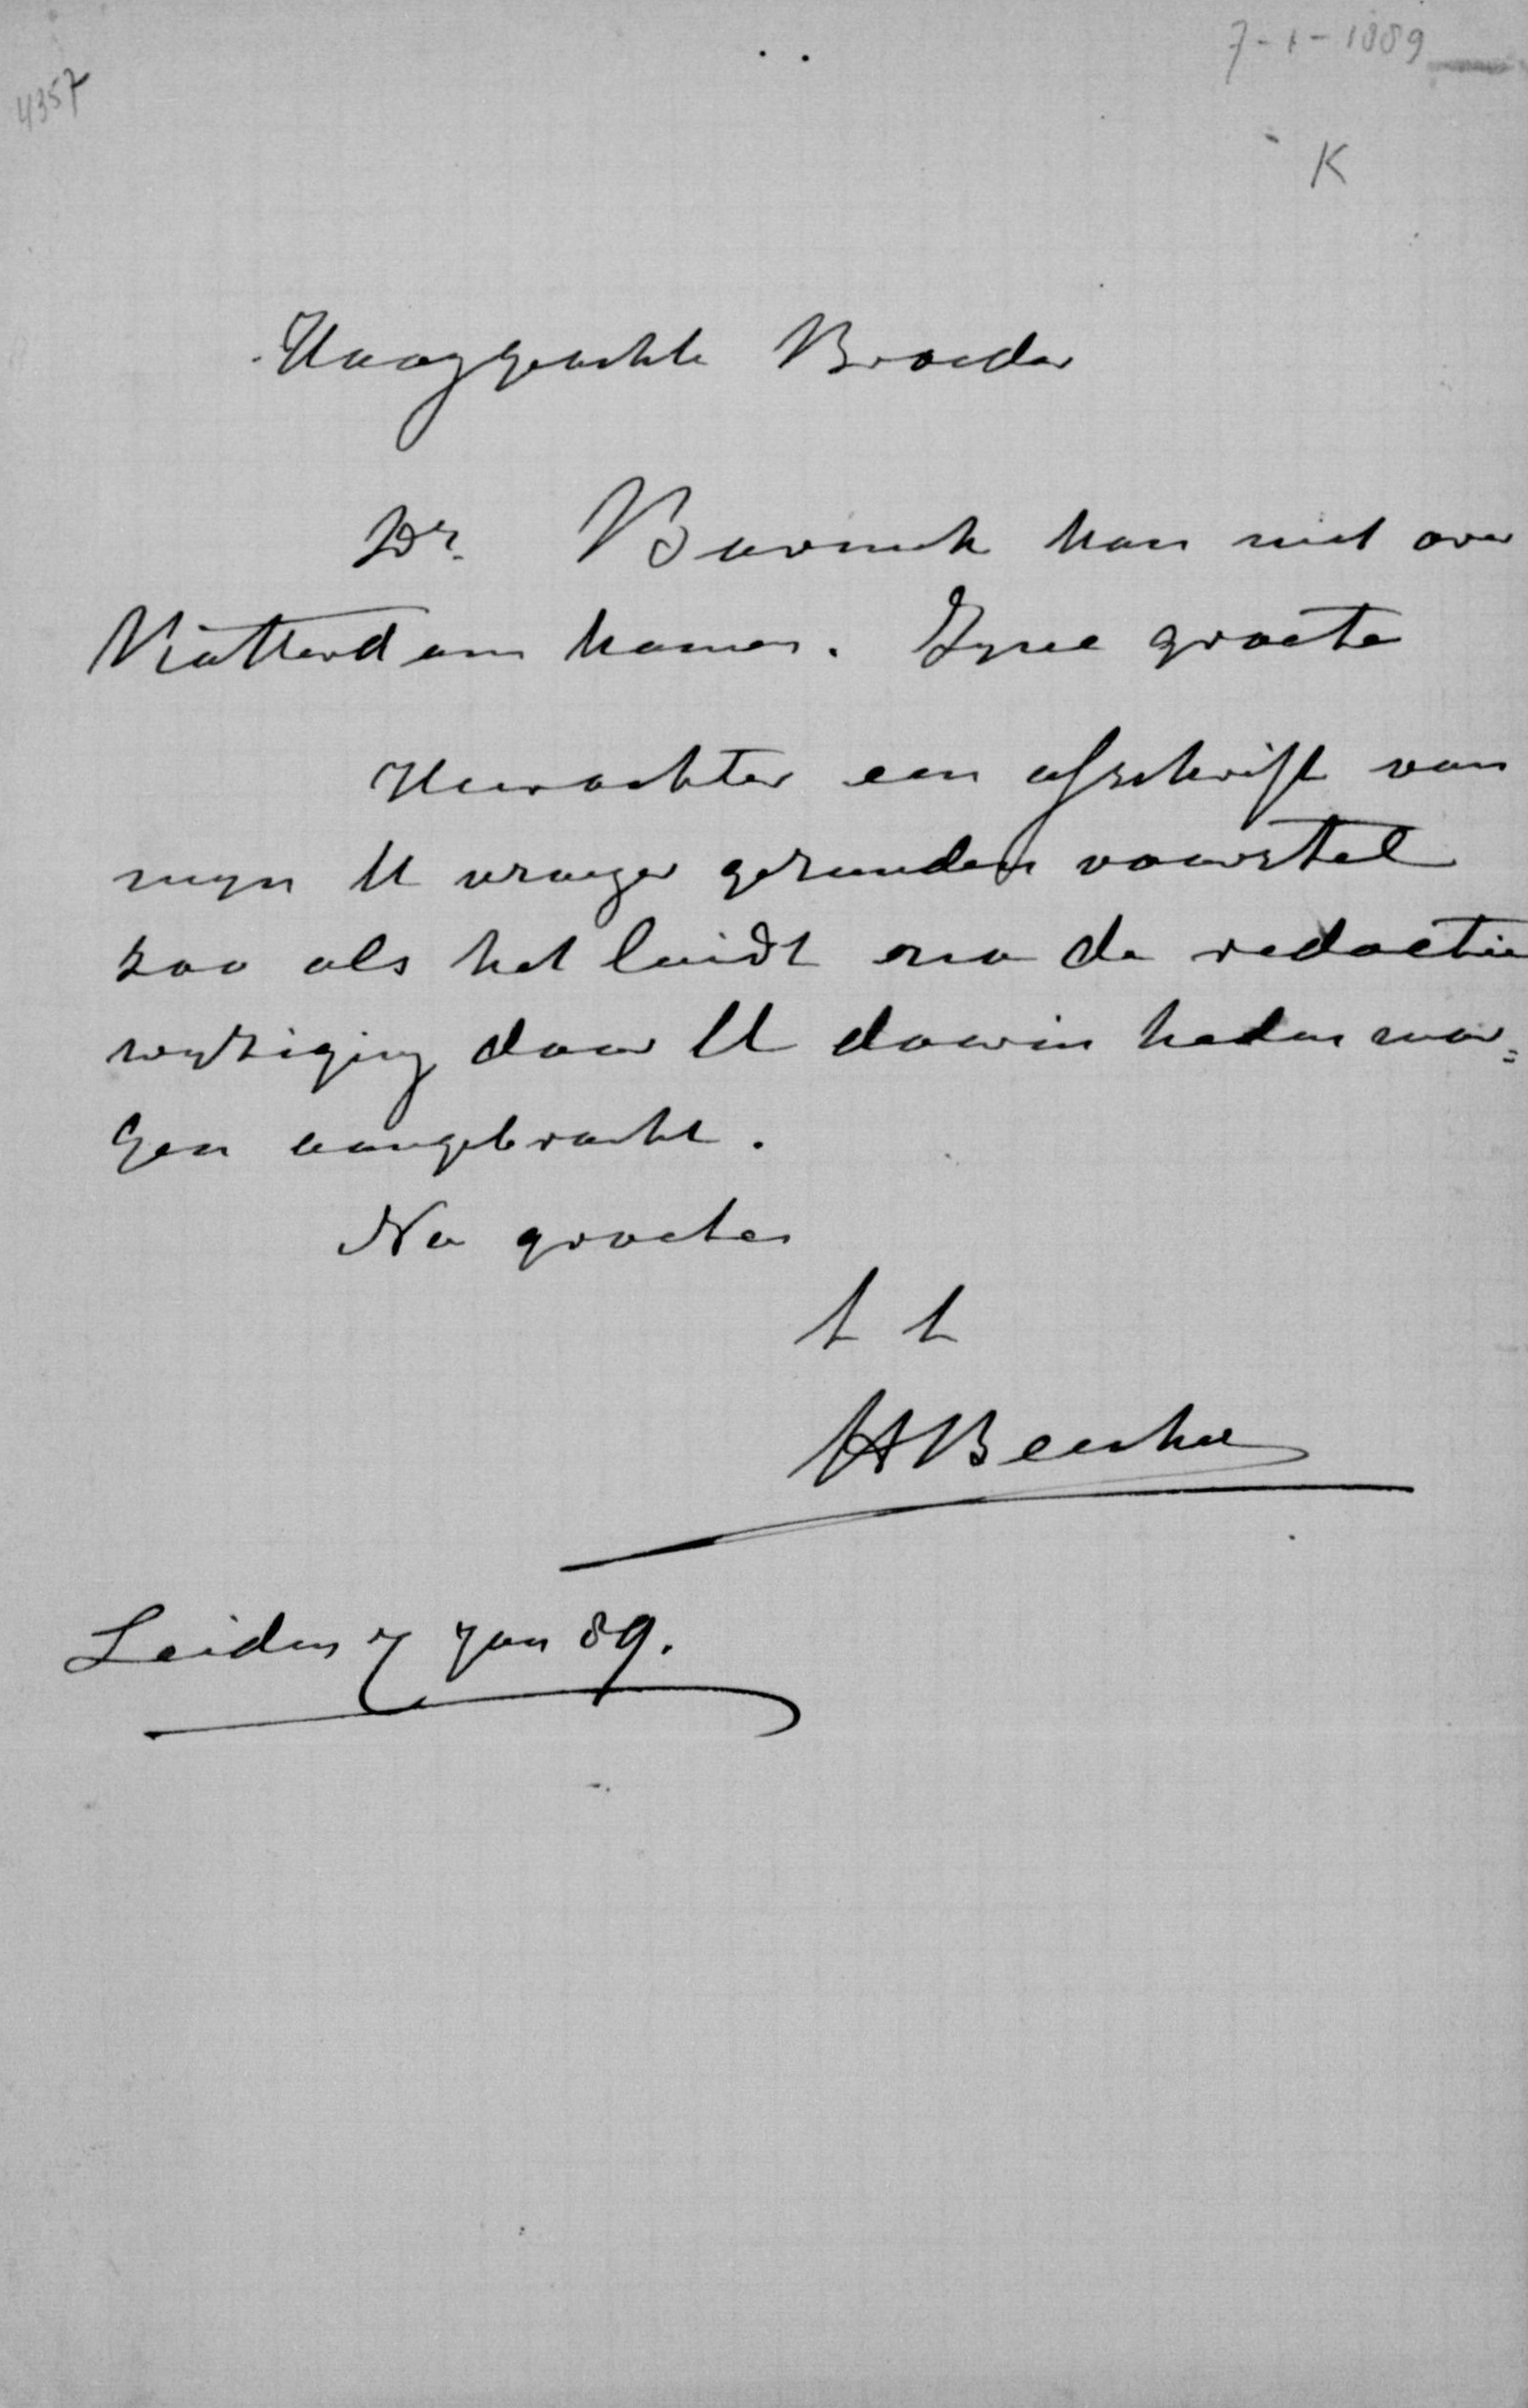 7-1-1889
4357
K
Hooggeachte Broeder
Dr. Bavinck kan niet over
Rotterdam komen. Zyne groete
Hierachter een afschrift van
myn U vroeger gezonden voorstel
zoo als het luidt na de redactie
wyziging door U daarin heden mor=
gen aangebracht.
Na groeten
t t
HBeuker
Leiden 7 Jan 89.